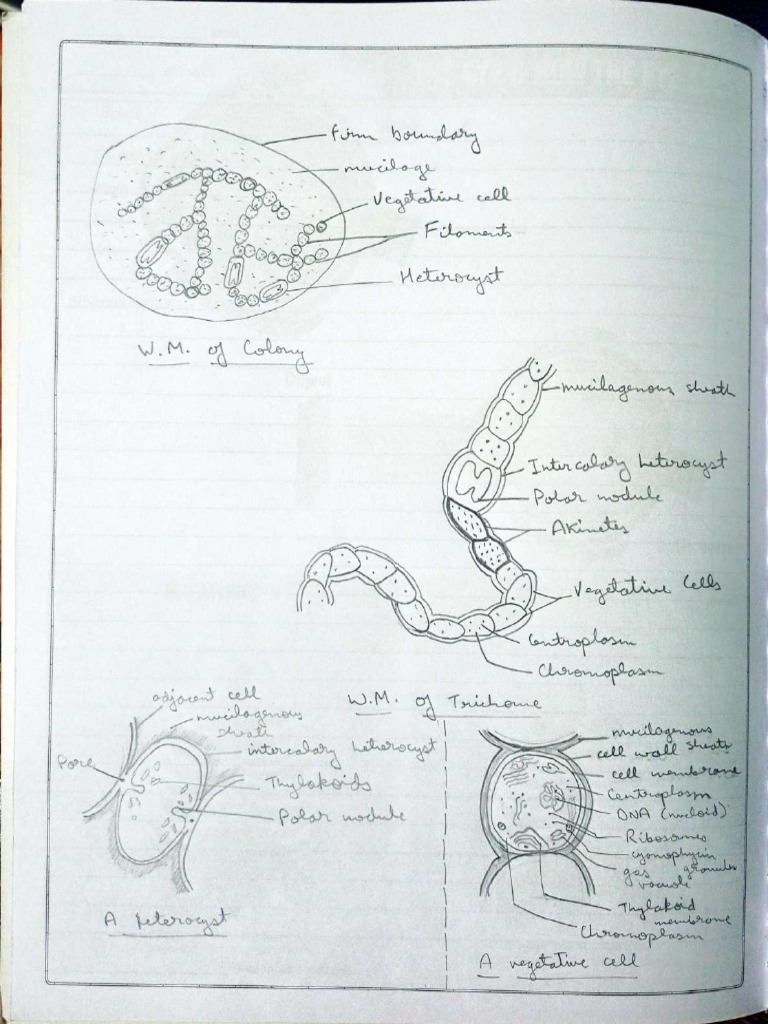 Firm boundary
mucilage
Vegetative cell
Filaments
Heterocyst
W.M. of Colony
mucilagenous sheath
Intercalary heterocyst
Polar nodule
Akinetes
Vegetative Cells
Centroplasm
Chromoplasm
W.M. of Trichome
adjacent cell
mucilagenous
sheath
intercalary heterocyst
Pore
Thylakoids
Polar nodule
A heterocyst
mucilagenous
cell wall sheath
cell membrane
Centroplasm
DNA (nucloid)
Ribosomes
cyanophycin
granules
gas
vacuole
Thylakoid
membrane
Chromoplasm
A vegetative cell